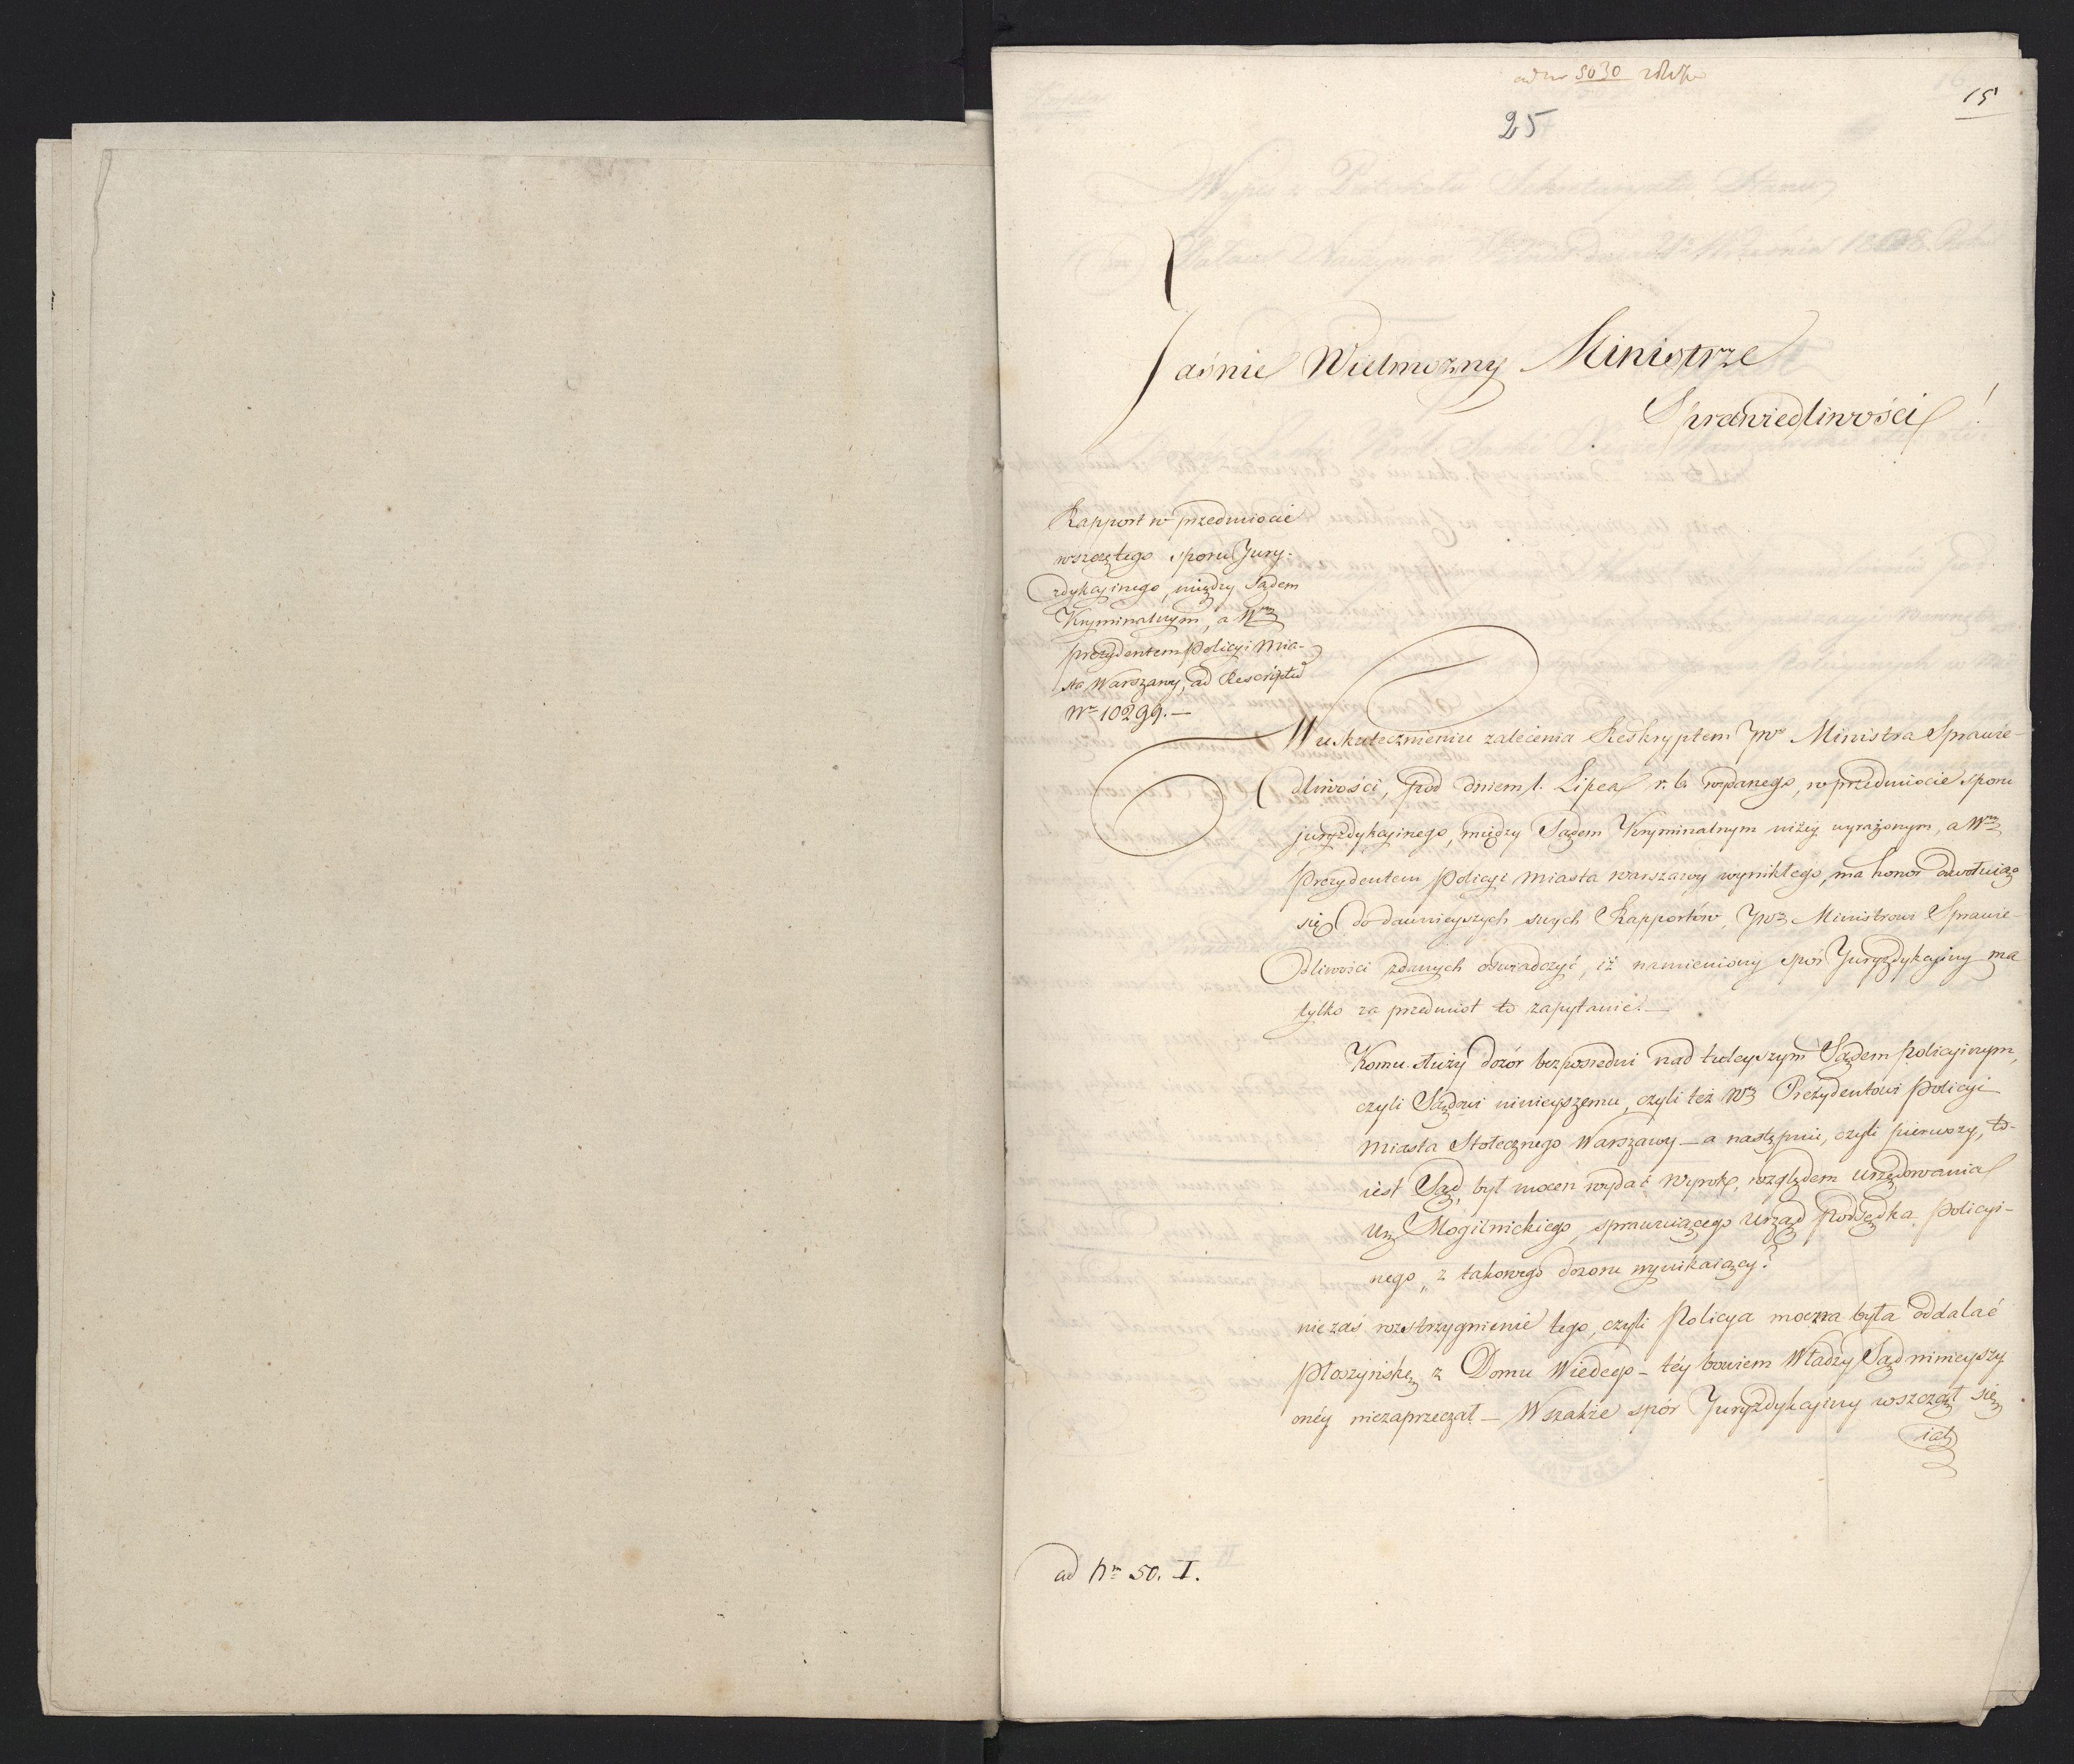 ad nr 5030
15
25
Jaśnie Wielmożny Ministrze
Sprawiedliwości!
Rapport w przedmiocie
wszczętego sporu Jury-
zdykcyinego, między Sądem
Kryminalnym, a Wm
Prezydentem Policyi Mia-
sta Warszawy, ad Rescriptu
Nr 10299.—
W uskutecznieniu zalecenia Reskryptem JW Ministra Sprawie-
dliwości, pod dniem 1. Lipca r. b. wydanego, w przedmiocie sporu
juryzdykcyinego, między Sądem Kryminalnym niżey wyrażonym, a Wm
Prezydentem Policyi Miasta Warszawy wynikłego, ma honor odwołuiąc
się do dawnieyszych swych Rapportów, JW Ministrowi Sprawie-
dliwości zdanych oświadczyć, iż namieniony spór Juryzdykcyiny ma
tylko za przedmiot to zapytanie.—
Komu służy dozór bezpośredni nad tuteyszym Sądem policyinym,
czyli Sądowi ninieyszemu, czyli też W Prezydentowi Policyi
Miasta Stołecznego Warszawy — a następnie, czyli pierwszy, to-
iest Sąd, był mocen wydać Wyrok, względem urzędowania
Ur Mogilnickiego, sprawuiącego Urząd Podsędka Policyi-
nego, z takowego dozoru wynikaiący?
nie zaś rozstrzygnienie tego, czyli Policya moczna była oddalać
Płoszyńskę z Domu Wiedego — téy bowiem Władzy Sąd ninieyszy
onéy niezaprzeczał — Wszakże spór Juryzdykcyiny wszczął się
iak
ad Nr 50. I.